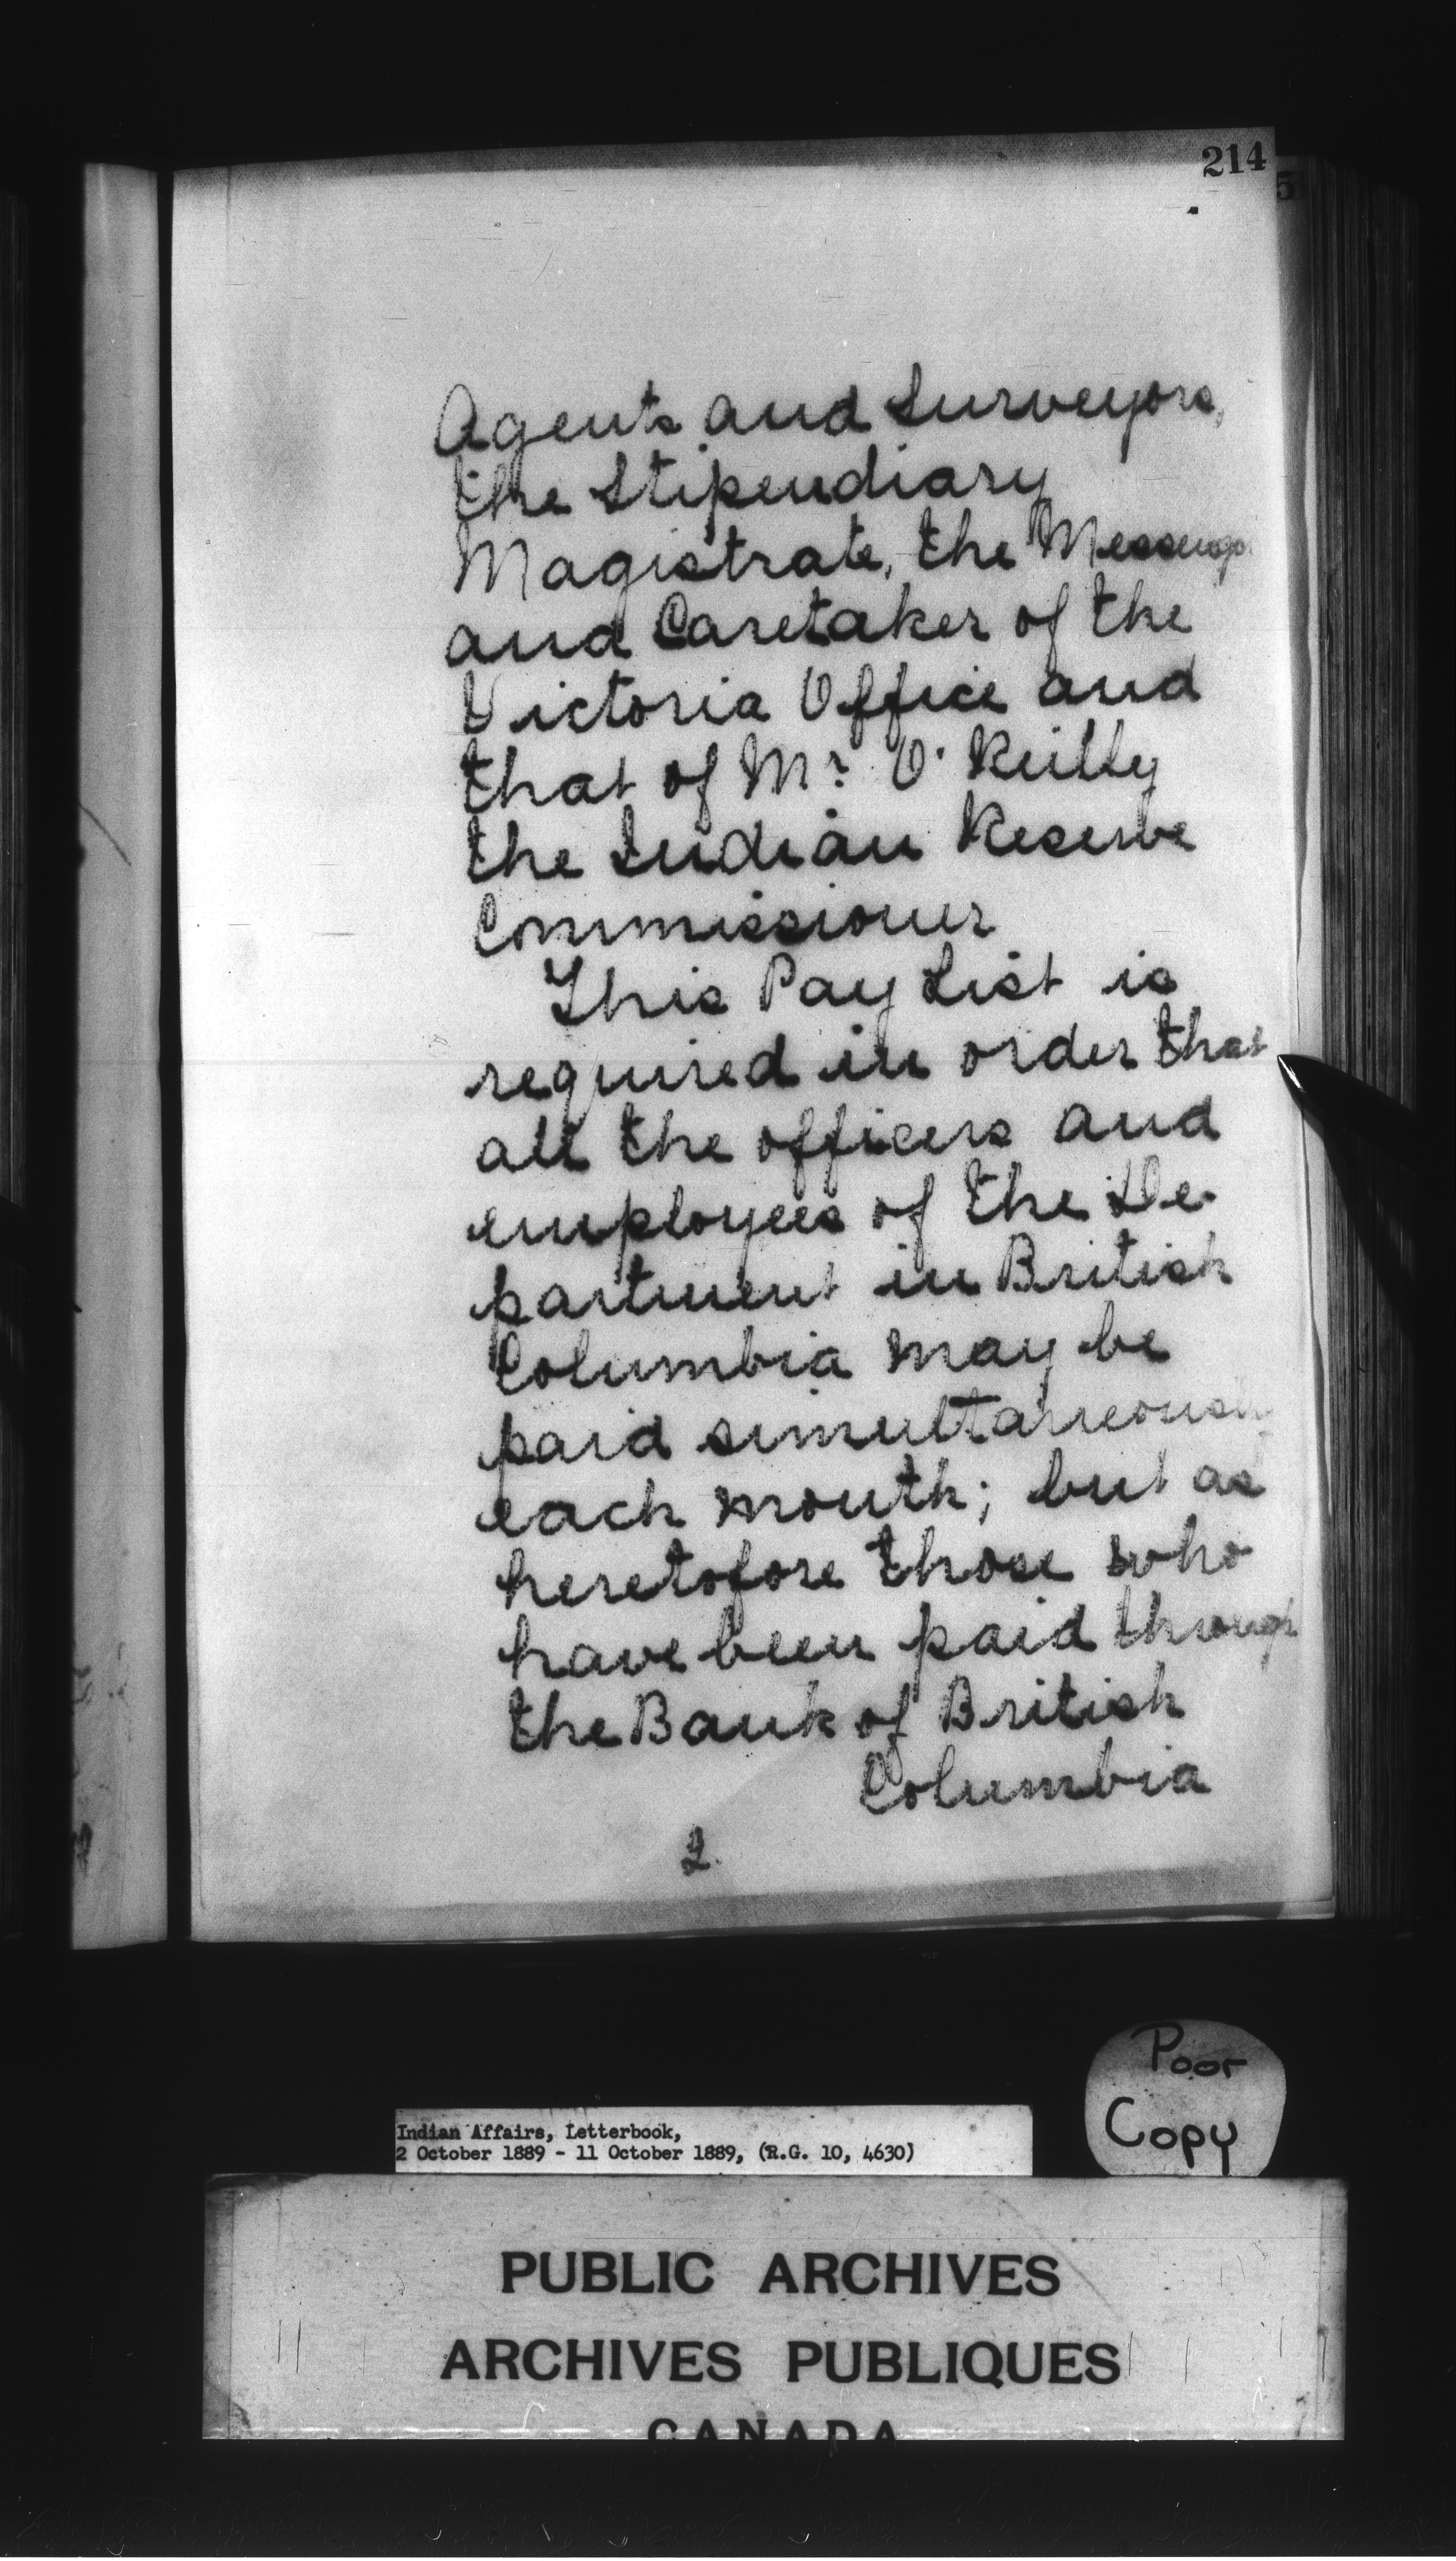 214
5
Agents and Surveyors,
the Stipendiary
Magistrate, the Messenger
and Caretaker of the
Victoria Office and
that of Mr. O'Reilly
the Indian Reserve
Commissioner
This Pay List is
required in order that
all the officers and
employees of the De-
partment in British
Columbia may be
paid simultaneously
each month; but as
heretofore those who
have been paid through
the Bank of British
Columbia
2.
Poor
Copy
Indian Affairs, Letterbook,
2 October 1889 - 11 October 1889, (R.G. 10, 4630)
PUBLIC ARCHIVES
ARCHIVES PUBLIQUES
CANADA